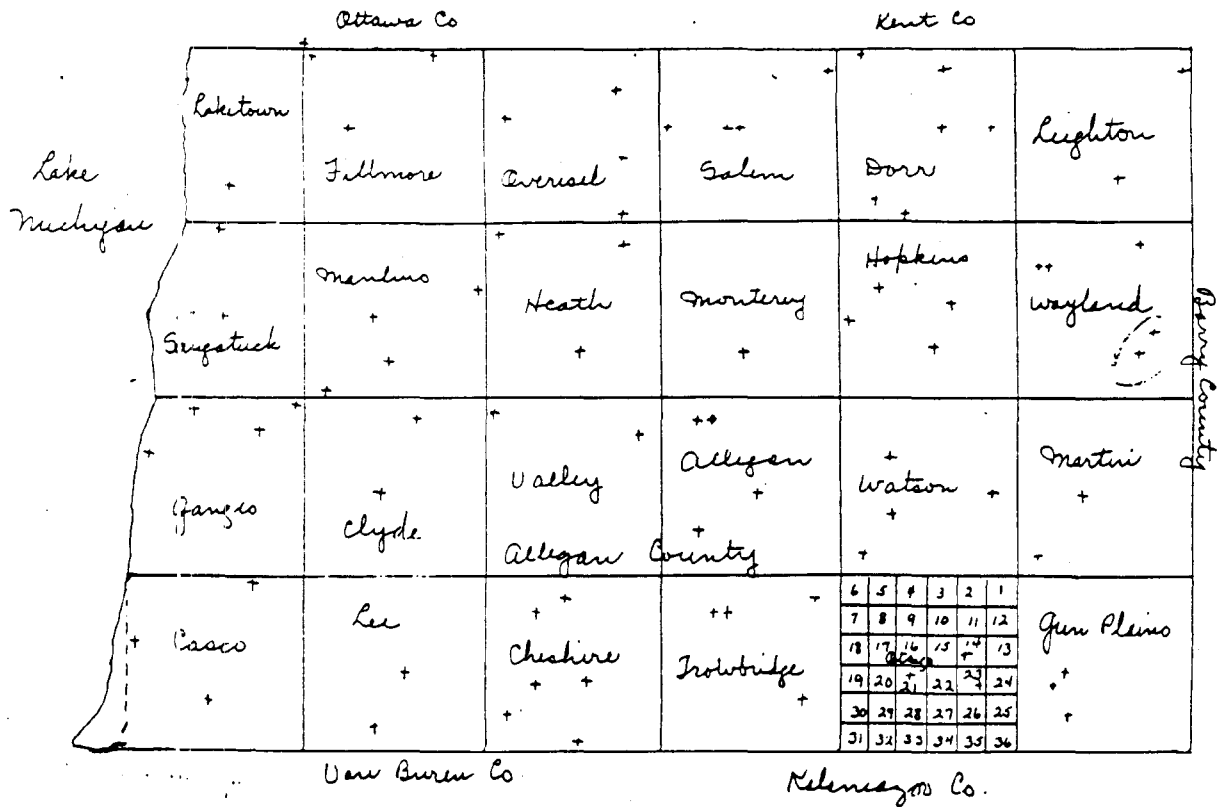 Ottawa Co Kent Co
Laketown
Fillmore Overisel Salem Dorr Leighton
Lake
Michigan
Manlius Heath Monterey Hopkins Wayland
Saugatuck
Barry County
Ganges Clyde Valley Allegan Watson Martin
Allegan County
Casco Lee Cheshire Trowbridge Otsego Gun Plains
6 5 4 3 2 1
7 8 9 10 11 12
18 17 16 15 14 13
19 20 21 22 23 24
30 29 28 27 26 25
31 32 33 34 35 36
Van Buren Co Kalamazoo Co.